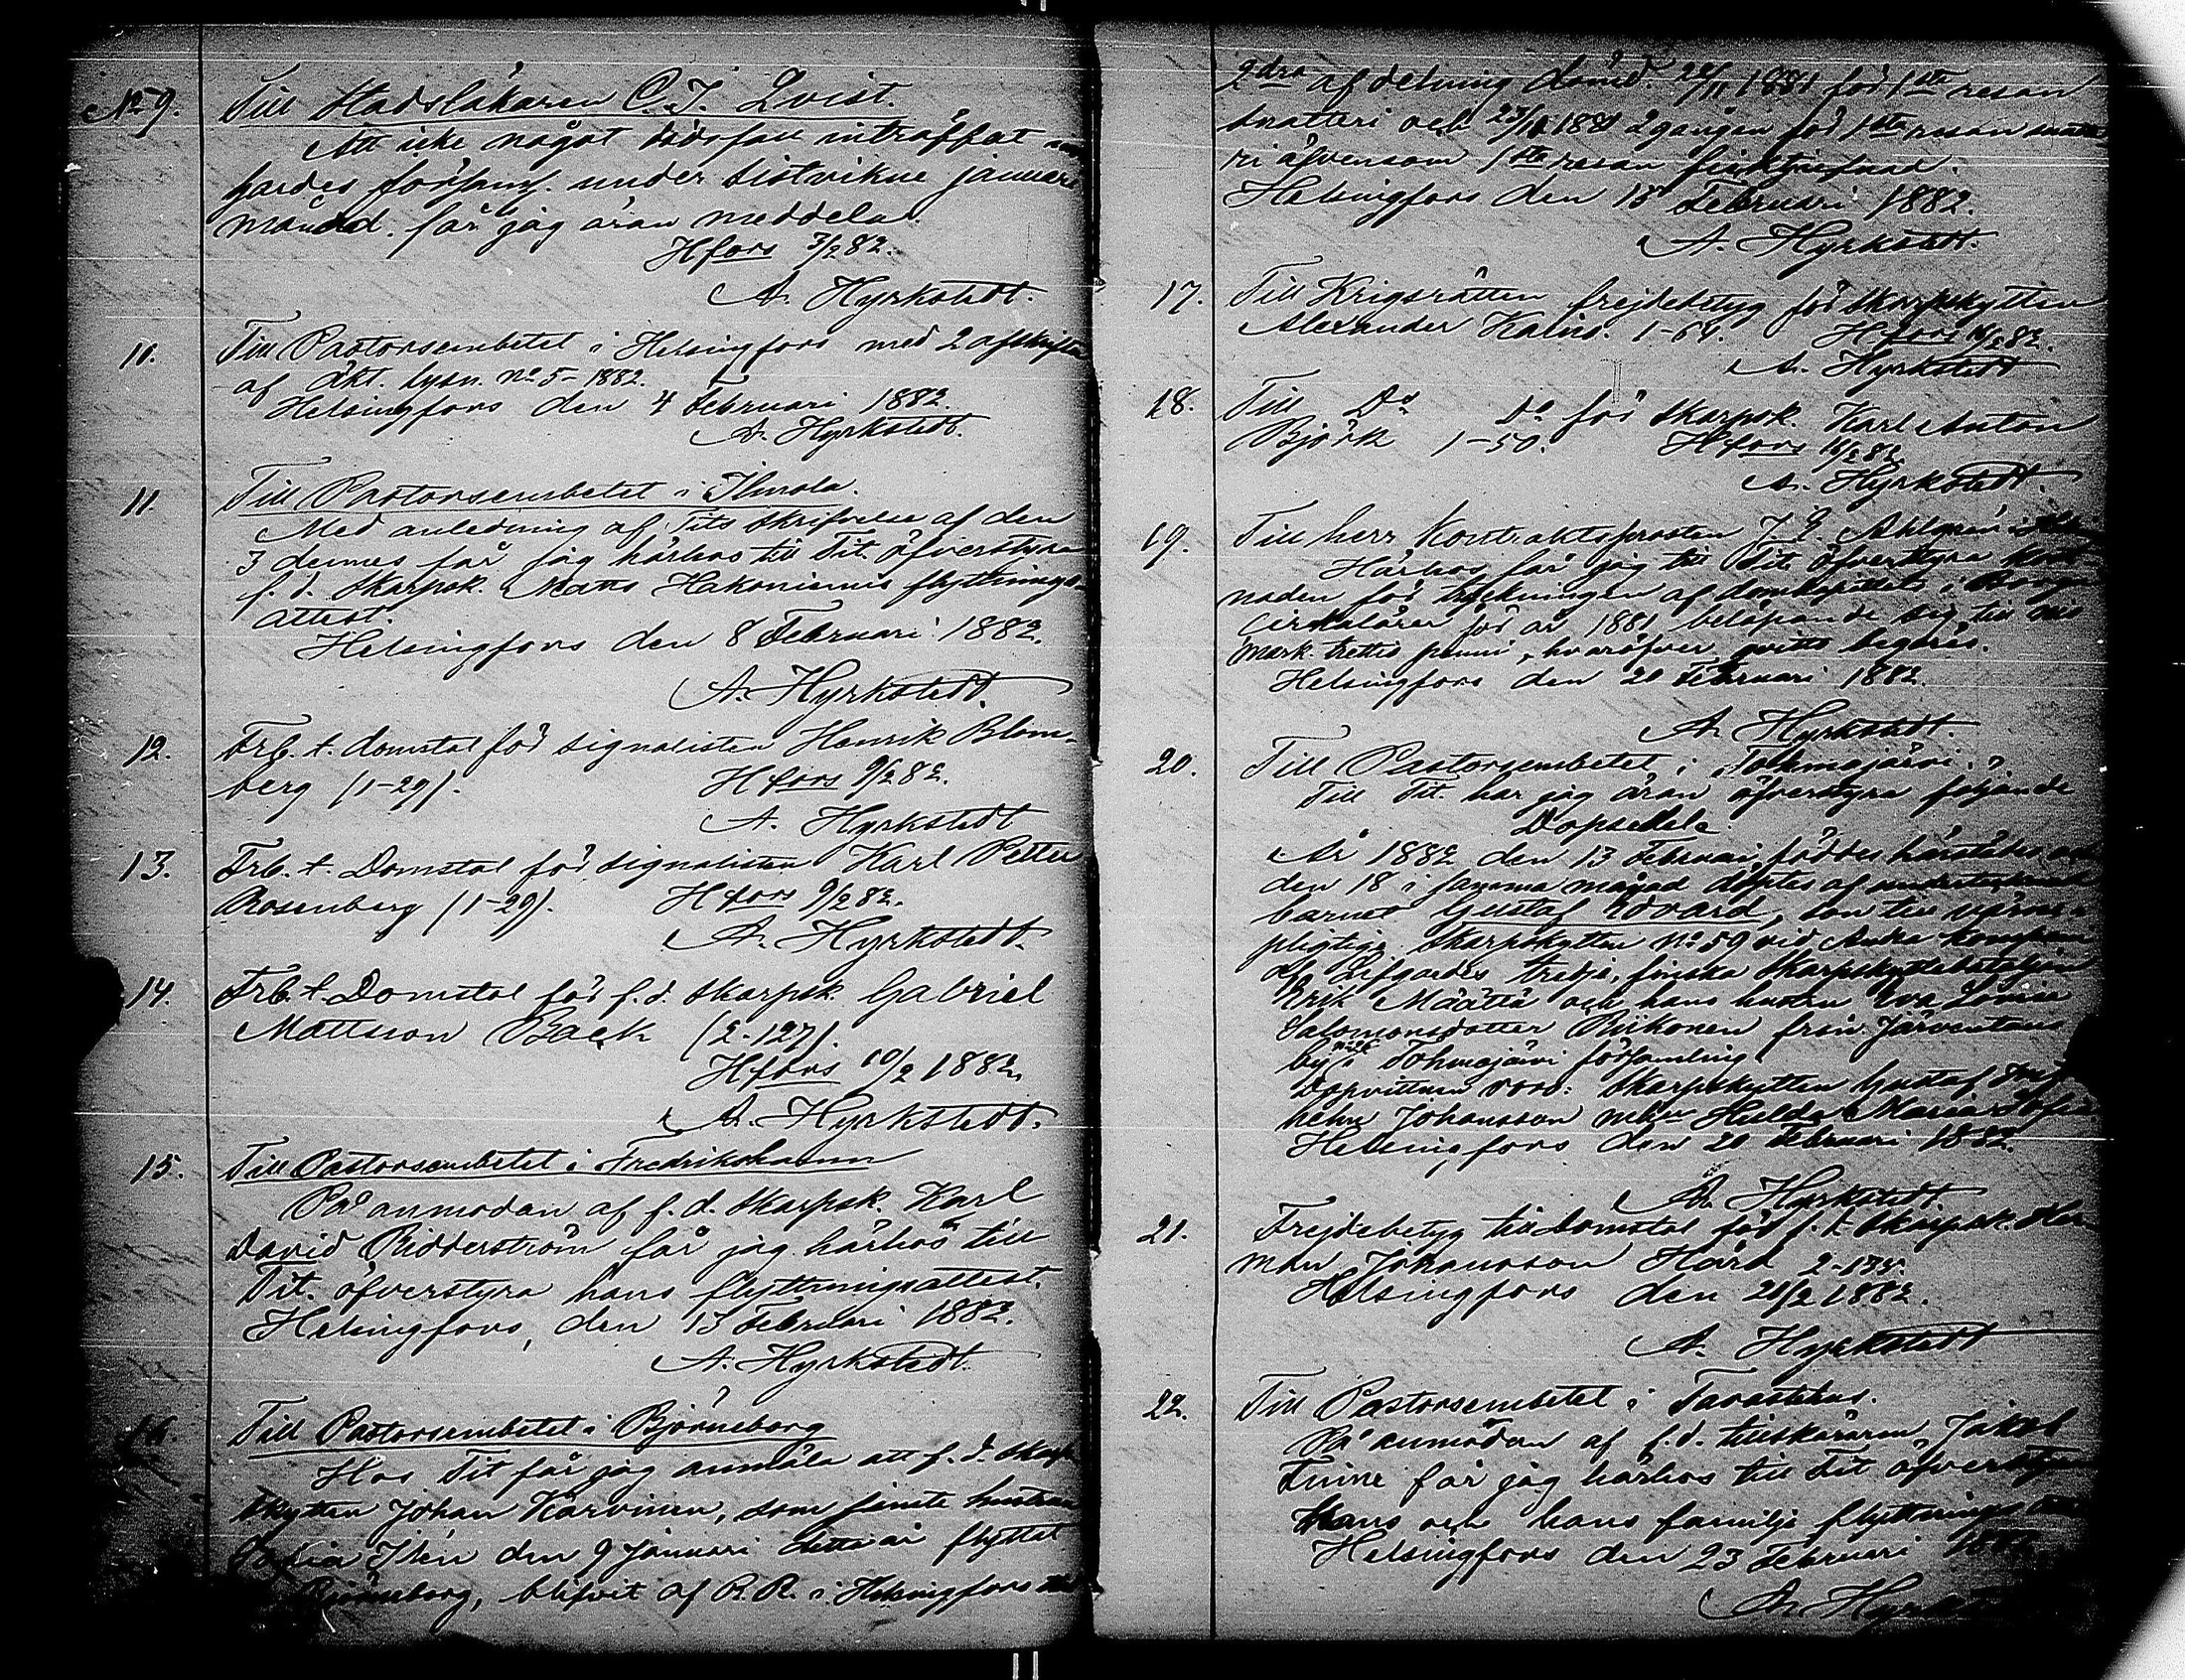 No 9. Till Stadsläkaren C. J. Qvist.
Att icke något dödsfall inträffat inom
gardes församl. under sistvikne januari
månad får jag äran meddela.
Hfors 3/2 82.
A. Hyrkstedt.
10. Till Pastorsembetet i Helsingfors med 2 afskrifter
af äkt. lysn. No 5 - 1882.
Helsingfors den 4 Februari 1882.
A. Hyrkstedt.
11. Till Pastorsembetet i Ilmola.
Med anledning af Tits skrifvelse af den
3 dennes får jag härhos till Tit. öfverstyra
f. d. Skarpsk. Matts Hakoniemis flyttnings-
attest.
Helsingfors den 8 Februari 1882.
A. Hyrkstedt.
12. Frb. t. domstol för signalisten Henrik Blom-
berg (1-29). Hfors 9/2 82.
A. Hyrkstedt
13. Frb. t. Domstol för signalisten Karl Petter
Rosenberg (1-29). Hfors 9/2 82.
A. Hyrkstedt.
14. Frb. t. Domstol för f. d. skarpsk. Gabriel
Mattsson Back (2-127).
Hfors 10/2 1882.
A. Hyrkstedt.
15. Till Pastorsembetet i Fredrikshamn
På anmodan af f. d. skarpsk. Karl
David Ridderström får jag härhos till
Tit. öfverstyra hans flyttningsattest.
Helsingfors, den 13 Februari 1882.
A. Hyrkstedt.
16. Till Pastorsembetet i Björneborg
Hos Tit får jag anmäla att f. d. skarp-
skytten Johan Karvinen, som jemte hustrun
Sofia Isén den 9 Januari detta år flyttat
Björneborg, blifvit af R. R. i Helsingfors
2dra afdelning dömd /11 1881 för 1sta resan
snatteri och 1881 2 gången för 1sta resan snatte-
ri äfvensom 1sta resan
Helsingfors den 15 Februari 1882.
A. Hyrkstedt.
17. Till Krigsrätten frejdebetyg för Skarpskytten
Alexander 1-64. Hfors 16/2 82.
A. Hyrkstedt
18. Till Do Do för skarpsk. Karl Anton
Björk 1-50. Hfors 16/2 82.
A. Hyrkstedt.
19. Till herr Kontraktsprosten J. E. Ahlgren i
Härhos får jag till Tit öfverstyra kost-
naden för tryckningen af domkapitlets i Borgå
cirkulärer för år 1881 belöpande sig till
mark trettio penni, hvaröfver qvitto begäres.
Helsingfors den 20 Februari 1882.
A. Hyrkstedt.
20. Till Pastorsembetet i Tohmajärvi.
Till Tit. har jag äran öfverstyra följande
Dopsedel.
År 1882 den 13 Februari föddes härstädes och
den 18 i samma månad döptes af undertecknad
barnet Gustaf Edvard, son till värne-
pligtige skarpskytten No 59 vid Andra kompani
af Lifgardes tredje, finska Skarpskyttebataljon
Erik Määttä och hans hustru Eva Lovisa
Salomonsdotter Riikonen från Järventaus
by i Tohmajärvi församling.
Dopvittnen voro: Skarpskytten Gustaf
Johansson och Hulda Maria Sofia
Helsingfors den 20 Februari 1882.
A. Hyrkstedt
21. Frejdebetyg till domstol för f. d. Skarpsk. Her-
man Johansson Hård
Helsingfors den 21/2 1882.
A. Hyrkstedt
22. Till Pastorsembetet i Tavastehus.
På anmodan af f. d. tillskäraren Jakob
får jag härhos till Tit öfverstyra
hans och hans familje flyttnings
Helsingfors den 23 Februari 1882.
A. Hyrkstedt